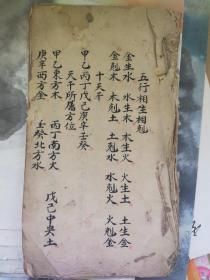 五行相生相剋
金生水 水生木 木生火 火生土 土生金
金剋木 木剋土 土剋水 水剋火 火剋金
十天干
甲乙丙丁戊己庚辛壬癸
天干所屬方位
甲乙東方木 丙丁南方火 戊己中央土
庚辛西方金 壬癸北方水